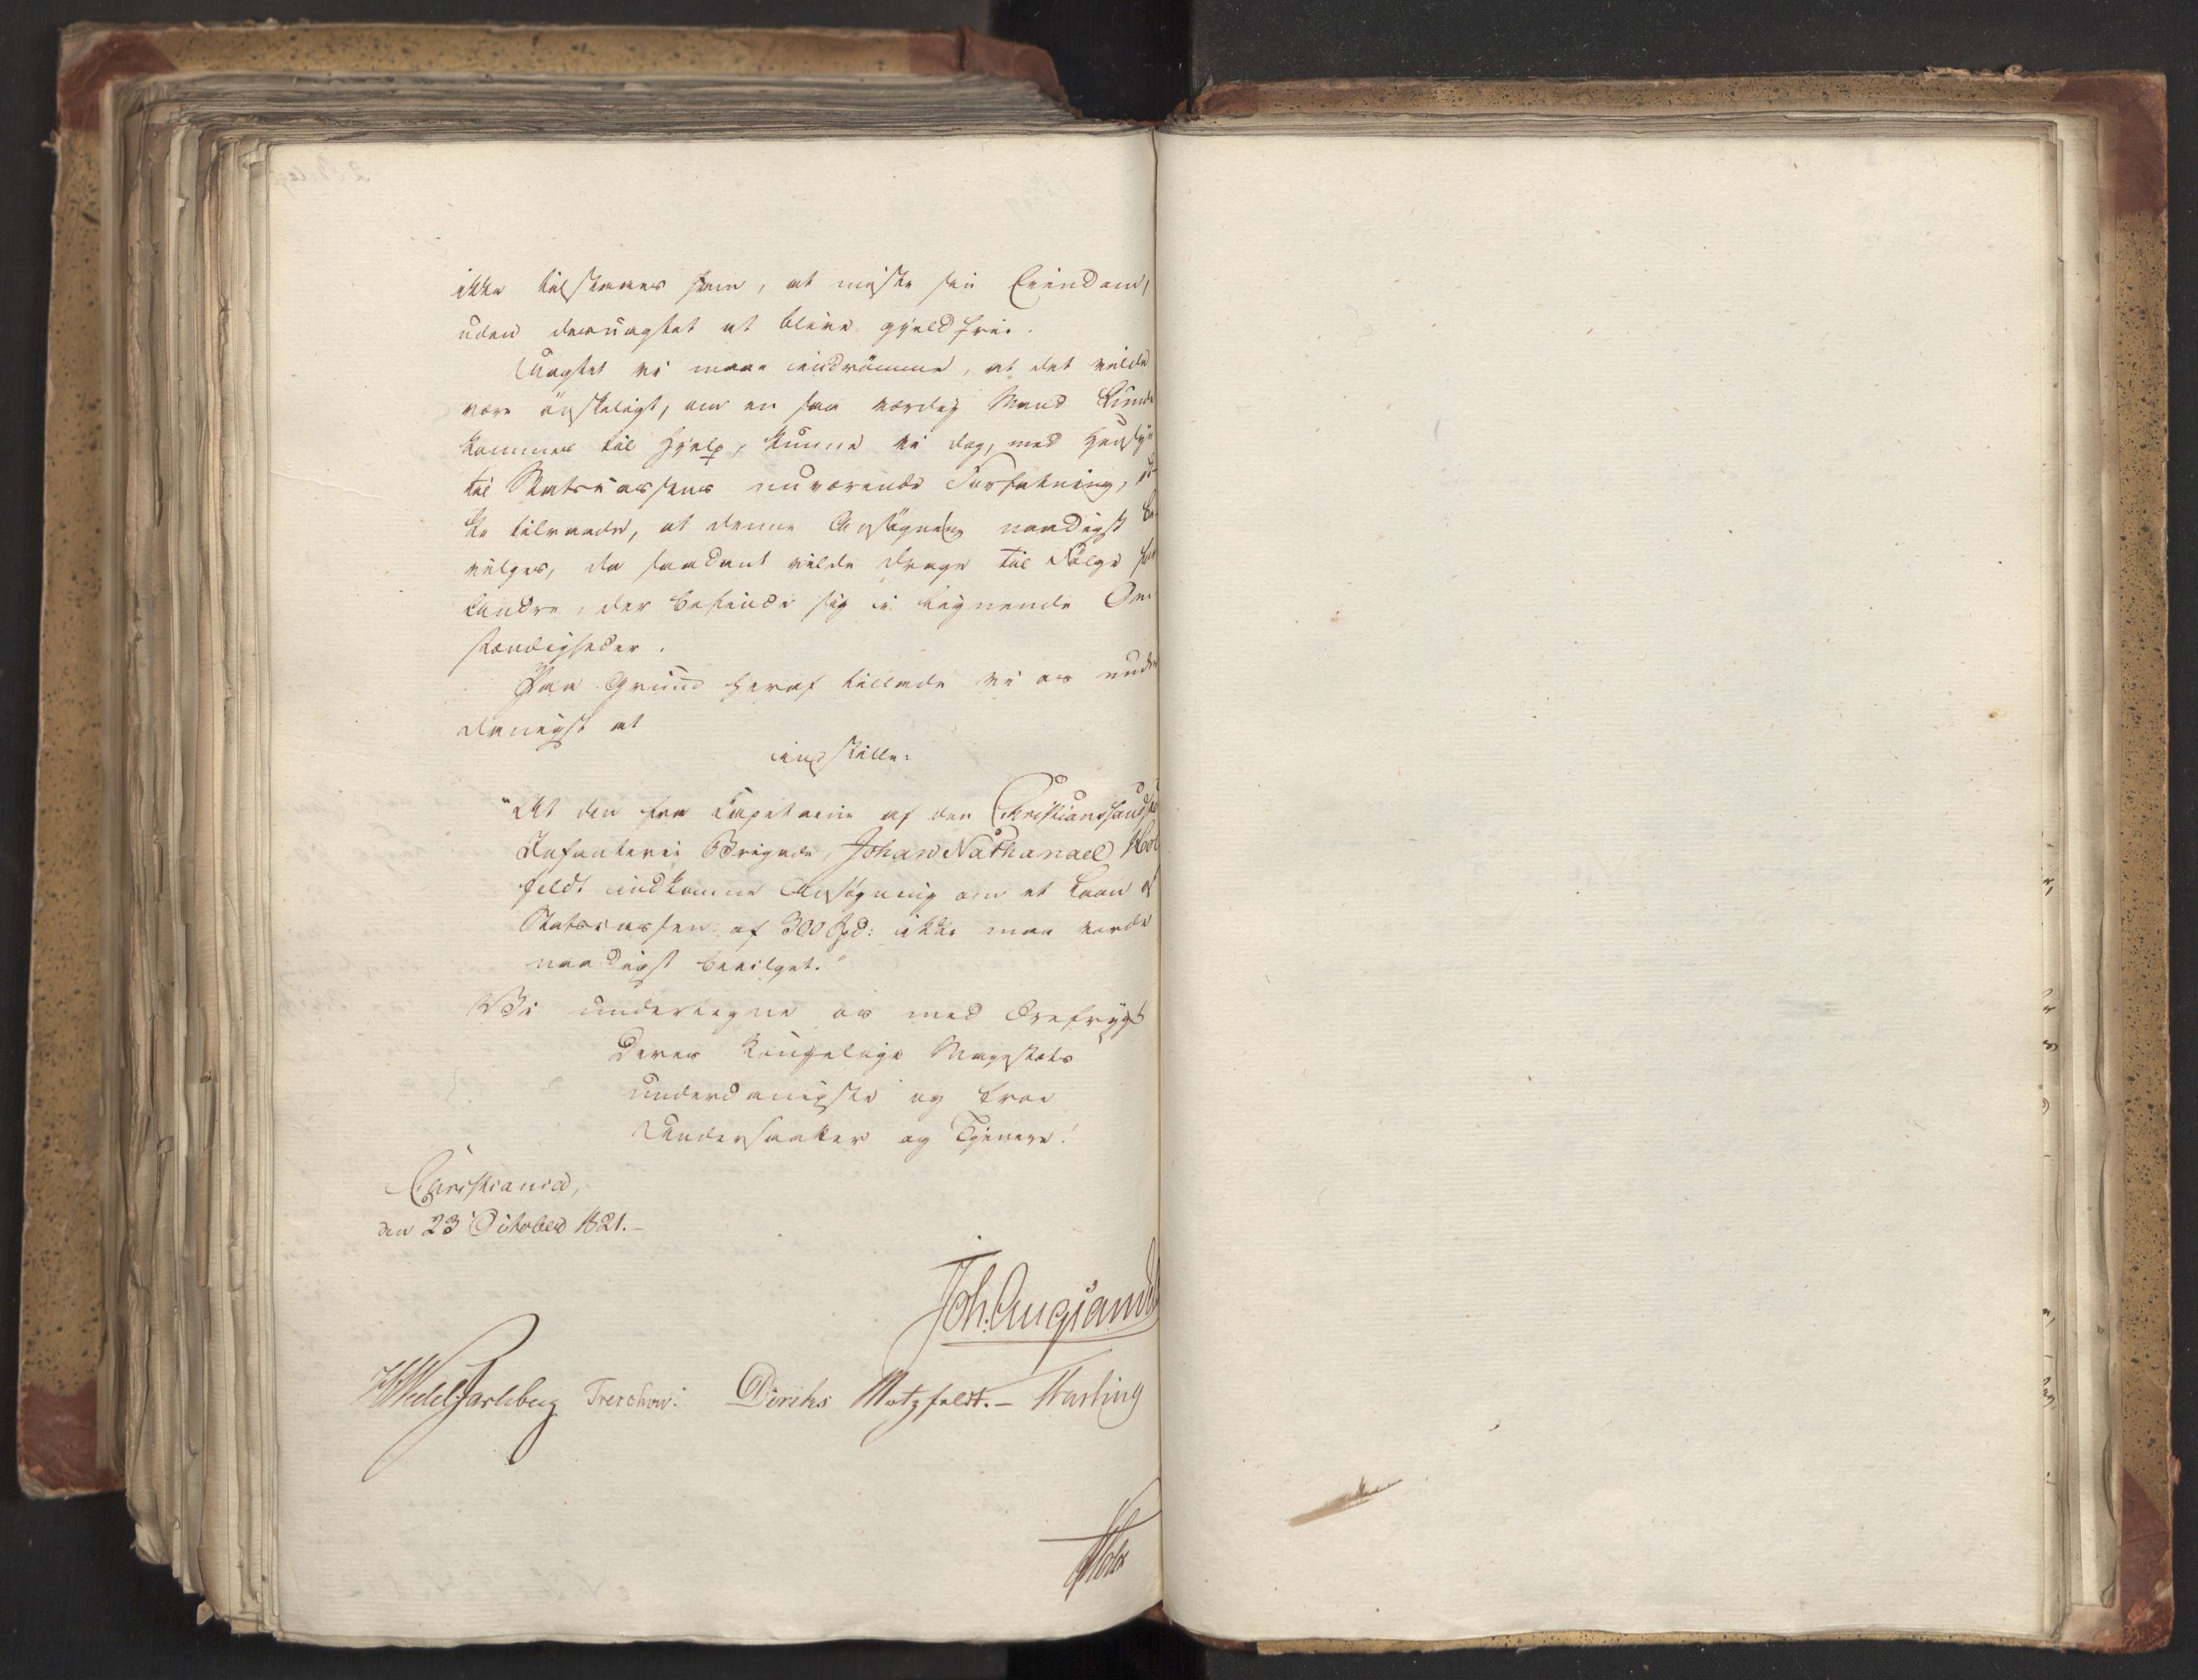 ikke tilstaaes ham, at miste sin Eiendom,
uden desuagtet at blive gjeldfrie.
Uagtet vi maae indrömme, at det vilde
være önskeligt, om en saa værdig Mand kunde
kommes til Hjelp, kunne vi dog, med Hensyn
til Statscassens nuværende Forfatning, ik-
ke tilraade, at denne Ansögning naadigst be-
vilges, da saadant vilde drage til Fölge for
Andre, der befinde sig i lignende Om
stændigheder.
Paa Grund heraf tillade vi os under
danigst at
indstille:
"At den fra Capitaine af den Christiansandske
Infanterie Brigade, Johan Nathanael
feldt indkomne Ansögning om et Laan af
Statscassen af 300 Spd: ikke maa vorde
naadigst bevilget."
Vi undertegne os med Ærefrygt
Deres Kongelige Majestæts
underdanigste og troe
Undersaatter og Tjenere!
Christiania,
den 23 October 1821.-
Joh. Aug: Sand
HWedel Jarlsberg Treschow: Diriks Motzfeldt.- Fasting
Holst